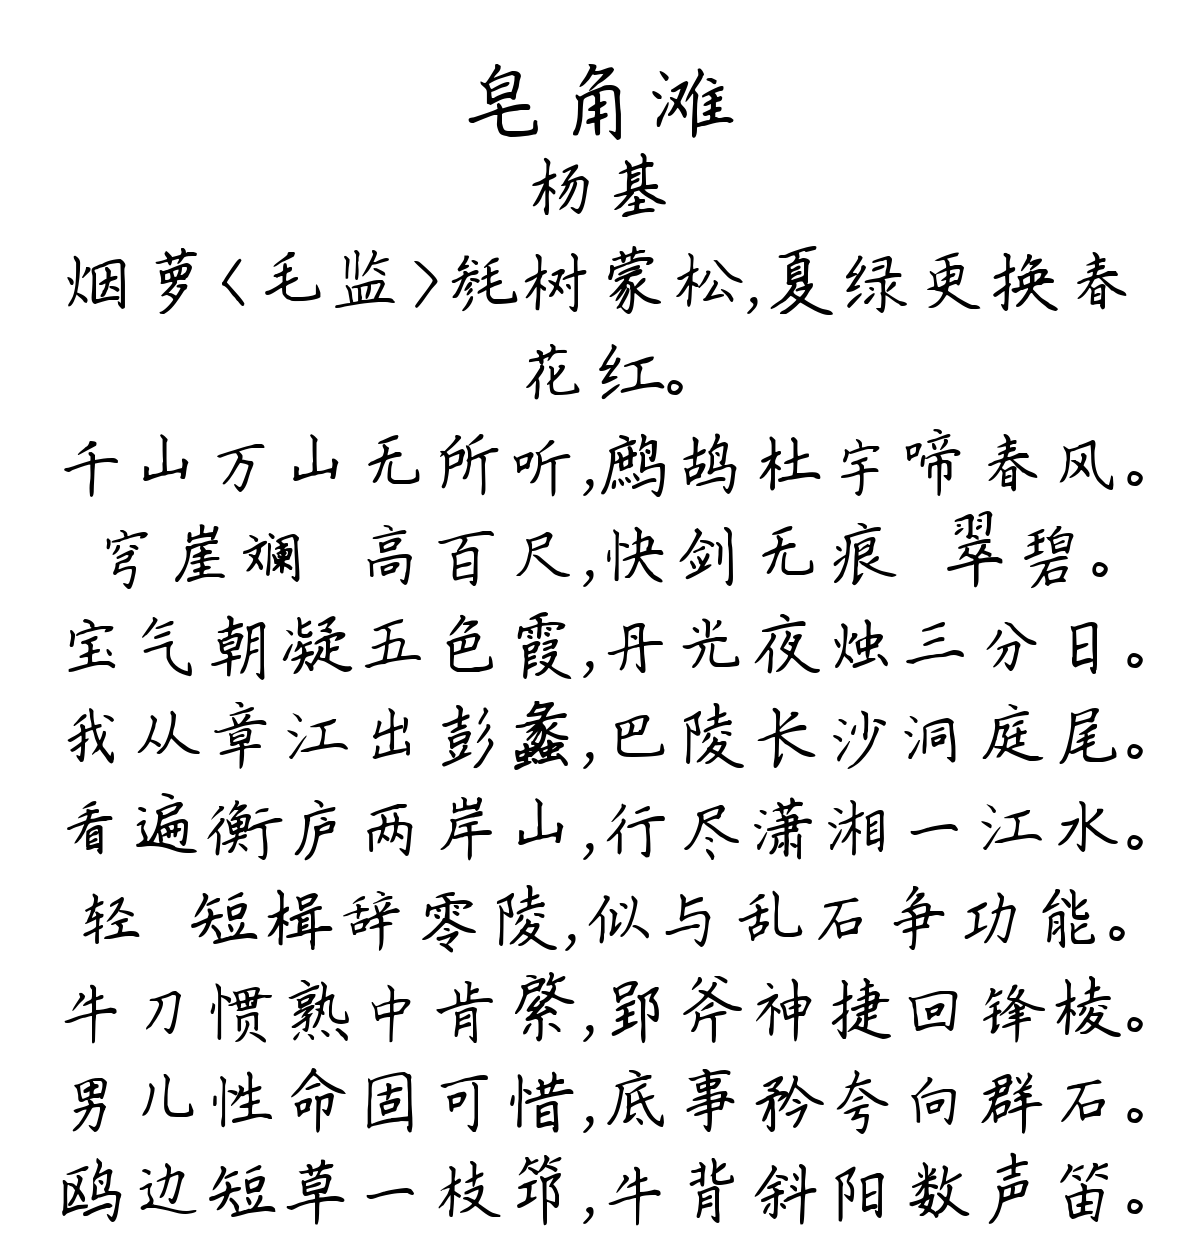 皂角滩
杨基
烟萝<毛监>毵树蒙松,夏绿更换春
花红。
千山万山无所听,鹧鸪杜宇啼春风。
穹崖斓 高百尺,快剑无痕 翠碧。
宝气朝凝五色霞,丹光夜烛三分日。
我从章江出彭蠡,巴陵长沙洞庭尾。
看遍衡庐两岸山,行尽潇湘一江水。
轻 短楫辞零陵,似与乱石争功能。
牛刀惯熟中肯綮,郢斧神捷回锋棱。
男儿性命固可惜,底事矜夸向群石。
鸥边短草一枝筇,牛背斜阳数声笛。